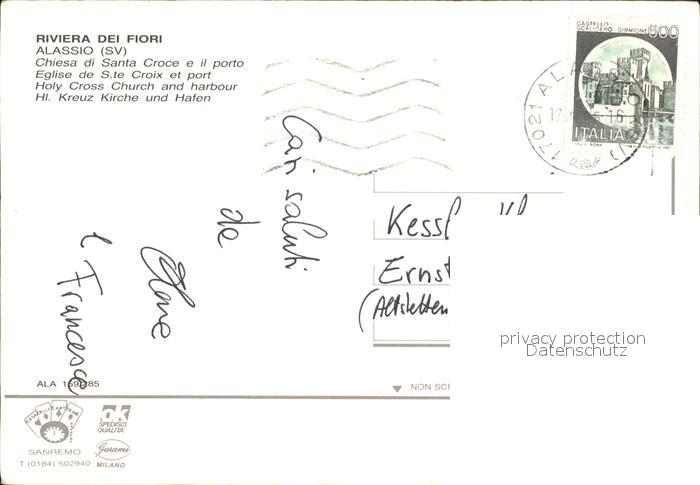 RIVIERA DEI FIORI
ALASSIO (SV)
Chiesa di Santa Croce e il porto
Eglise de S.te Croix et port
Holy Cross Church and harbour
Hl. Kreuz Kirche und Hafen
CASTELLO
SCALIGERO - SIRMIONE 600
ITALIA
17021 ALASSIO
Cari saluti
da
e Francesce
Kessl
Ernst
(Altstetten
privacy protection
Datenschutz
ALA 169/285
NON SCR
SANREMO
T.(0184) 502940
OK
SPEDISCE
QUALITA'
Garami
MILANO